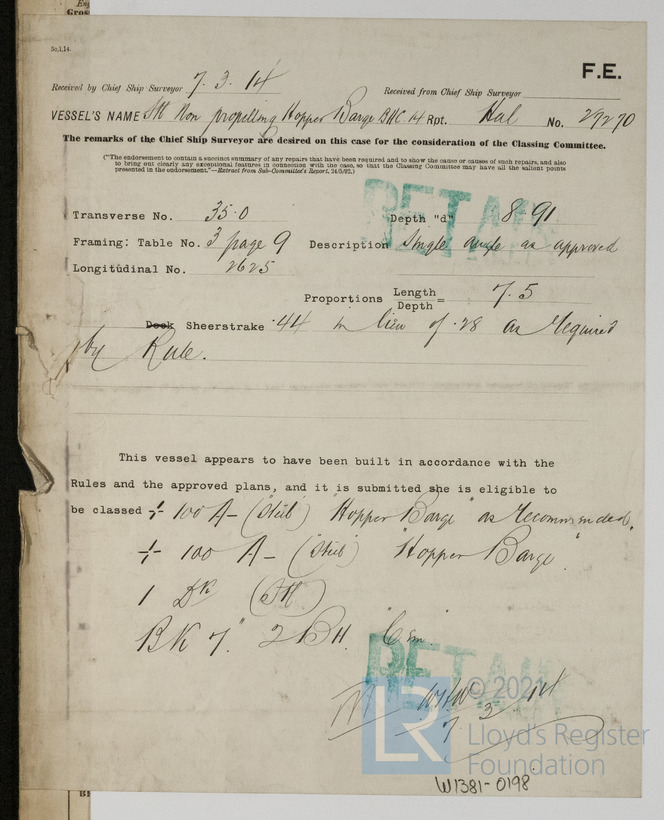 Gros
5o,1,14.
F.E.
Received by Chief Ship Surveyor 7. 3. 14 Received from Chief Ship Surveyor
VESSEL'S NAME Non propelling Hopper Barge BHC 14 Rpt. Hul No. 29270
The remarks of the Chief Ship Surveyor are desired on this case for the consideration of the Classing Committee.
("The endorsement to contain a succinct summary of any repairs that have been required and to show the cause or causes of such repairs, and also
to bring out clearly any exceptional features in connection with the case, so that the Classing Committee may have all the salient points
presented in the endorsement."—Extract from Sub-Committee's Report, 24/5/92.)
RETAIN
Transverse No. 35.0 Depth "d" 8.91
Framing: Table No. 3 page 9 Description Single angle as approved
Longitudinal No. 2625
Proportions Length/Depth = 7.5
Deck Sheerstrake .44 in lieu of .28 as required
by Rule.
This vessel appears to have been built in accordance with the
Rules and the approved plans, and it is submitted she is eligible to
be classed 100 A- (Steel) "Hopper Barge" as recommended.
100 A- (Steel) "Hopper Barge"
1 DK
BK 7" 2 BH Cem
RETAIN
7 3 14
© 2021
LR
Lloyd's Register
Foundation
W1381-0198